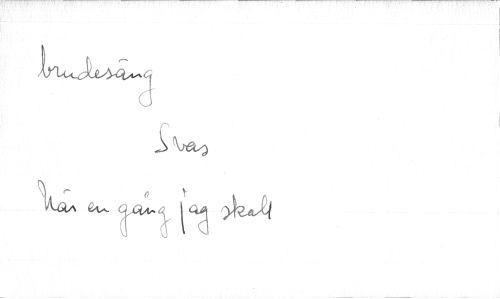 brudesång
Svas
När en gång jag skall